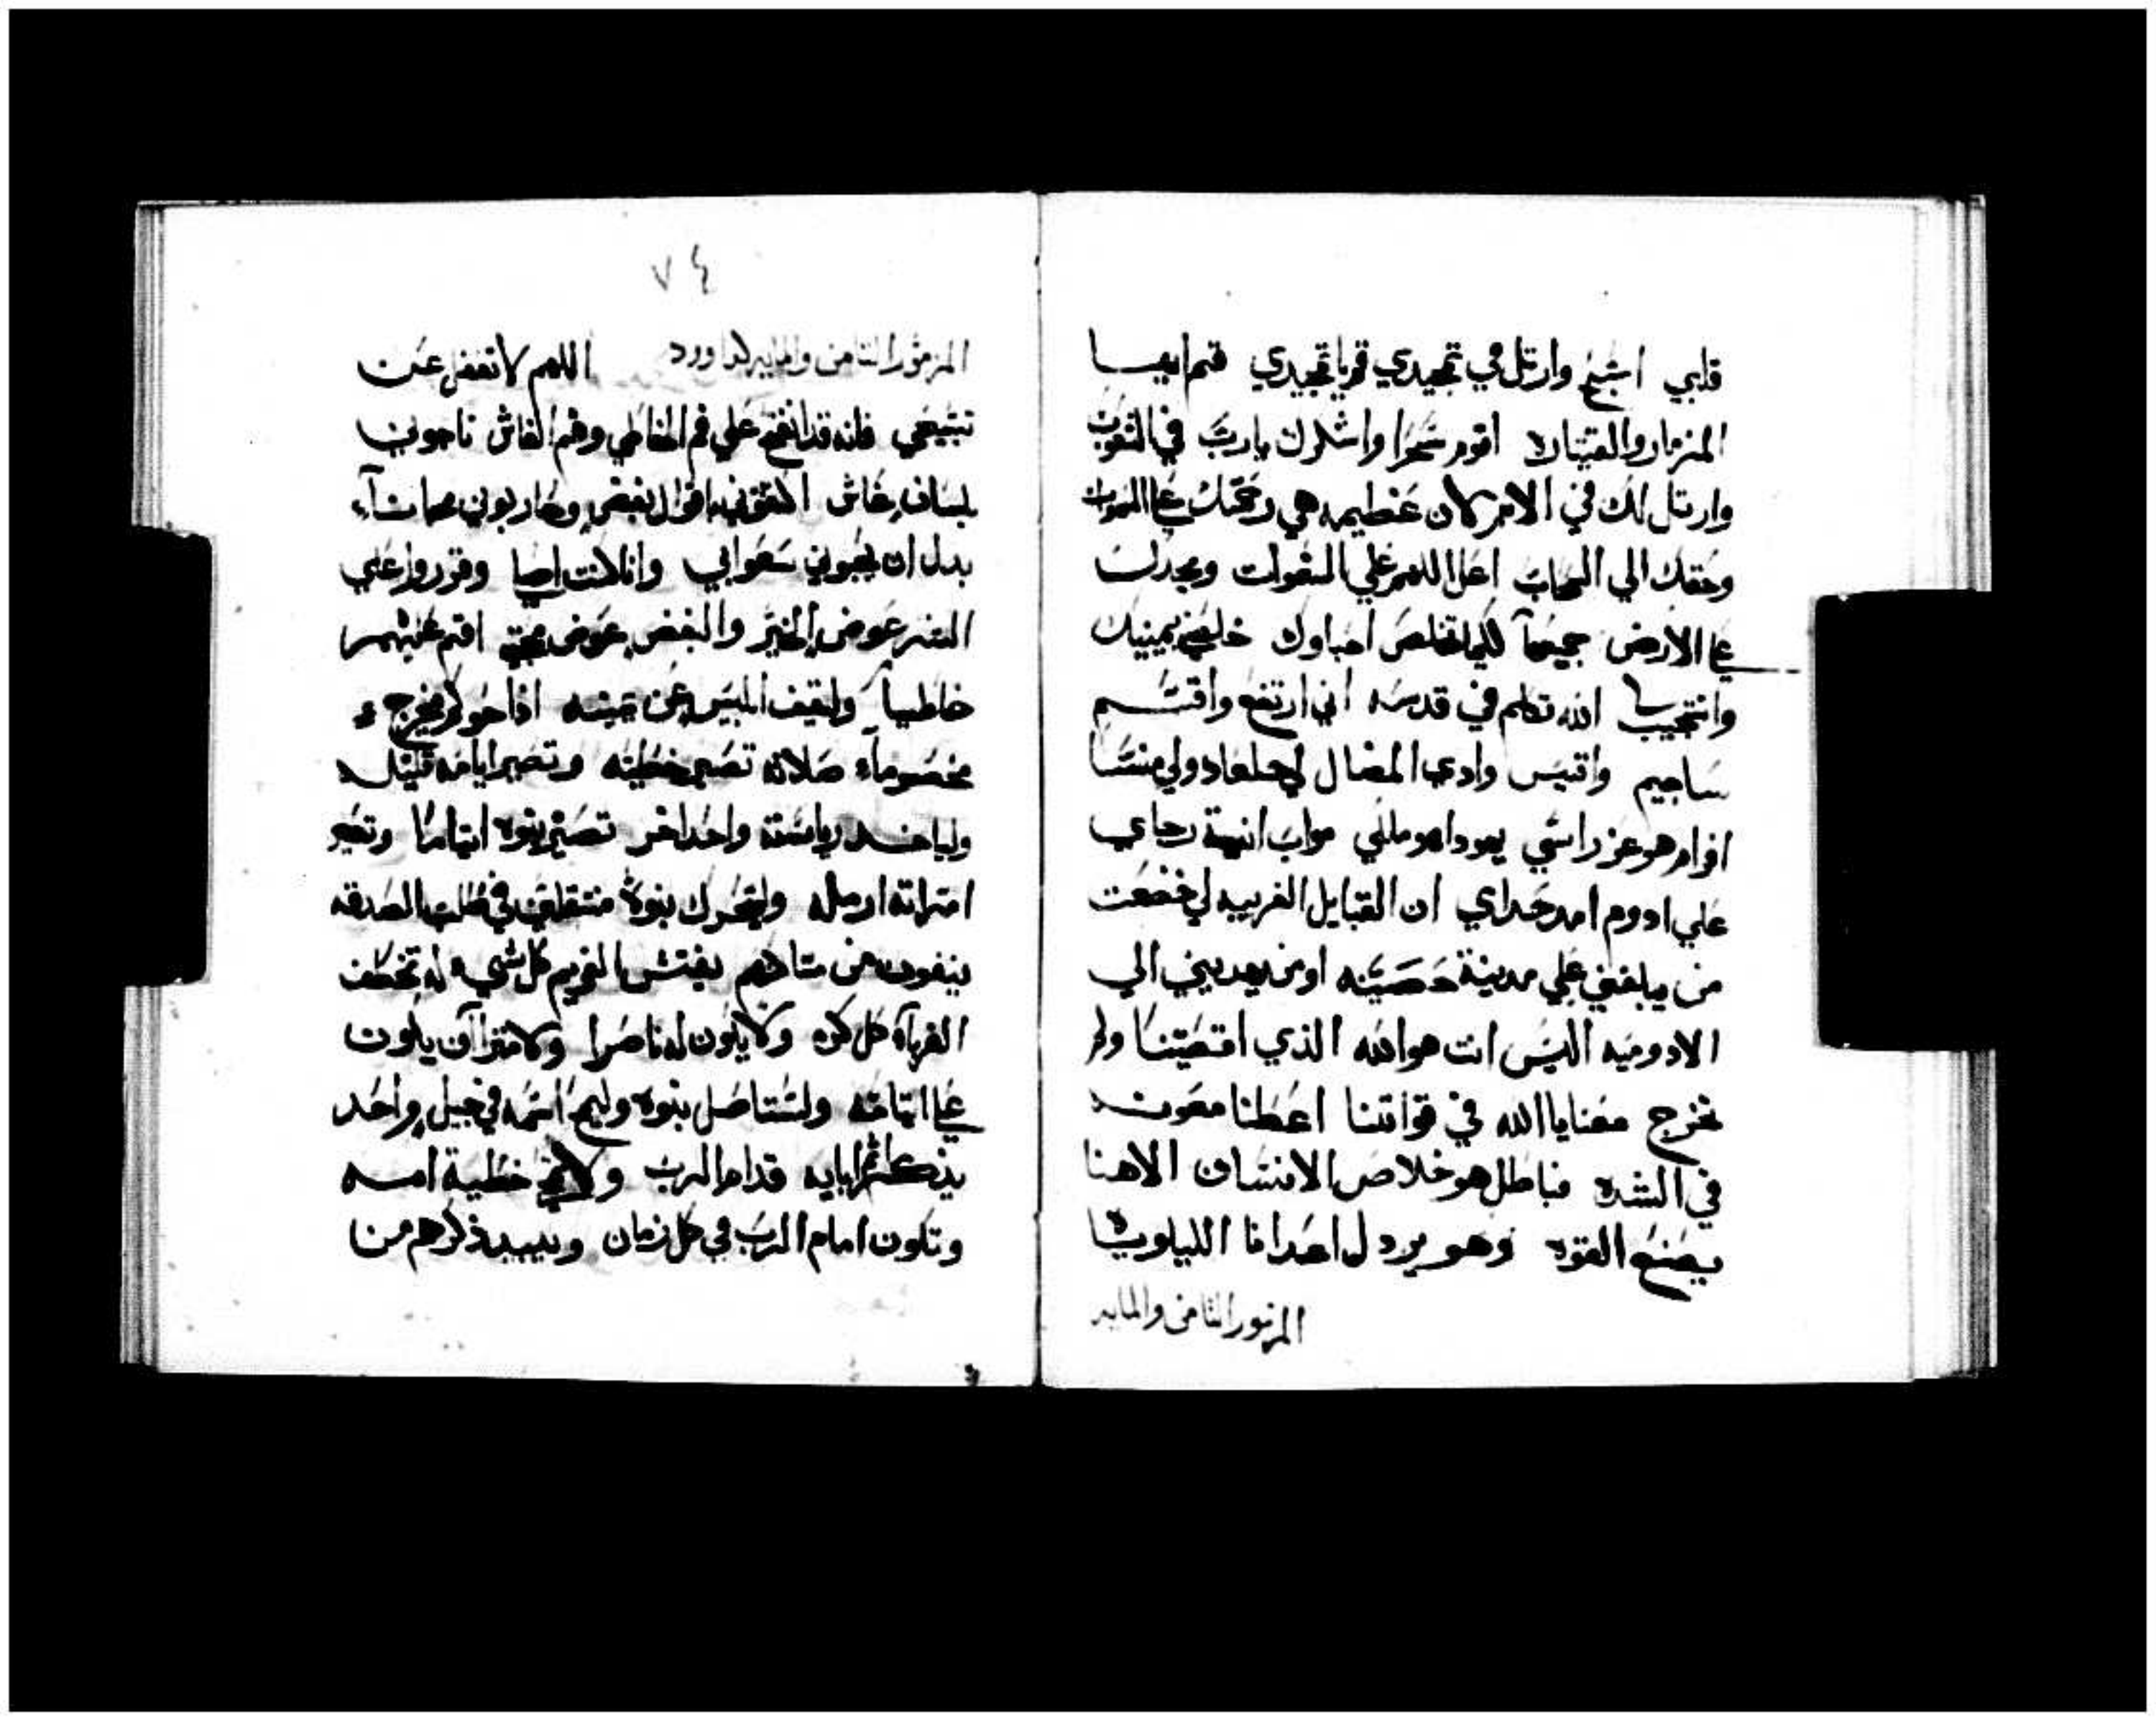 قلبي اسبح وارتل في تمجيدي قم يا تمجيدي قم ايها
المزمار والقيتاره اقوم سحرا واشكرك يارب في الشعوب
وارتل لك في الامم لان عظيمه هي رحمتك على السموات
وحقك الي السحاب اعل اللهم علي السموات ومجدك
على الارض جميعآ لكيما تخلص احباوك خلصني بيمينك
وانتجيب الله تكلم في قدسه اني ارتفع واقتسم
ساجيم واقيس وادي المضال لي جلعاد ولي منسا
افرام هو عز راسي يهودا هو ملكي مواب انية رجاي
علي ادوم امد حداي ان القبايل الغريبه لي خضعت
من يبلغني علي مدينة حصينه او من يهديني الي
الادوميه اليس انت هو الله الذي اقصيتنا ولم
تخرج معنا يا الله في قواتنا اعطنا معونه
في الشده فباطل هو خلاص الانسان الاهنا
يصنع القوه وهو يرذل اعدانا الليلويا
المزمور الثامن والمايه
٧٤
المزمور الثامن والمايه لداوود اللهم لا تغفل عن
تسبيحي فانه قد انفتح علي فم الخاطي وفم الغاش ناجوني
بلسان غاش اكتنفوني باقوال بغض وحاربوني مجانآ
بدل ان يحبوني سعوا بي وانا كنت اصلي وقرروا علي
الشر عوض الخير والبغض عوض محبتي اقم عليهم
خاطيا وليقف ابليس عن يمينه اذا حوكم فيخرج
مخصومآ صلاته تصير خطيه وتصير ايامه قليله
ولياخذ رياسته واحد اخر تصير بنوه ايتاما وتصير
امراته ارمله وليتحرك بنوه منتقلين في طلب الصدقه
ينفون من مساكنهم يفتش الغريم كل شي له تخطف
الغربآ كل كده ولا يكون له ناصرا ولا متراف يكون
على ايتامه ولتستاصل بنوه وليمح اسمه في جيل واحد
يذكر اثم ابايه قدام الرب ولا تمح خطية امه
وتكون امام الرب في كل زمان ويبيد ذكرهم من